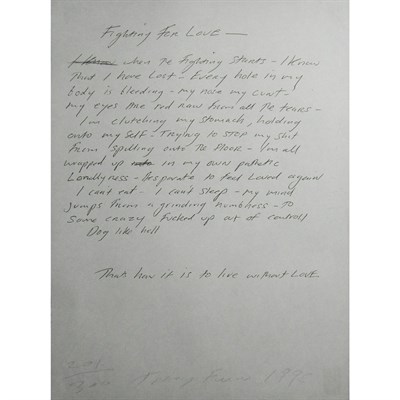 Fighting For Love —
I Know when The Fighting Starts - I Know
That I have Lost - Every hole in my
Body is bleeding - my nose my cunt -
my eyes are red raw From all The tears -
I'm clutching my stomach, holding
onto my self - Trying to stop my shit
From spilling onto The Floor - I'm all
wrapped up in my own pathetic
Lonellyness - Desparate to feel Loved again
I can't eat - I can't sleep - my mind
jumps From a grinding numbness - To
Some crazy Fucked up out of control
Dog like hell
Thats how it is to live without LOVE
201